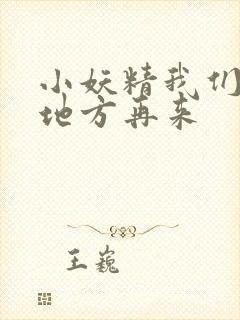 小妖精我们
地方再来
王巍